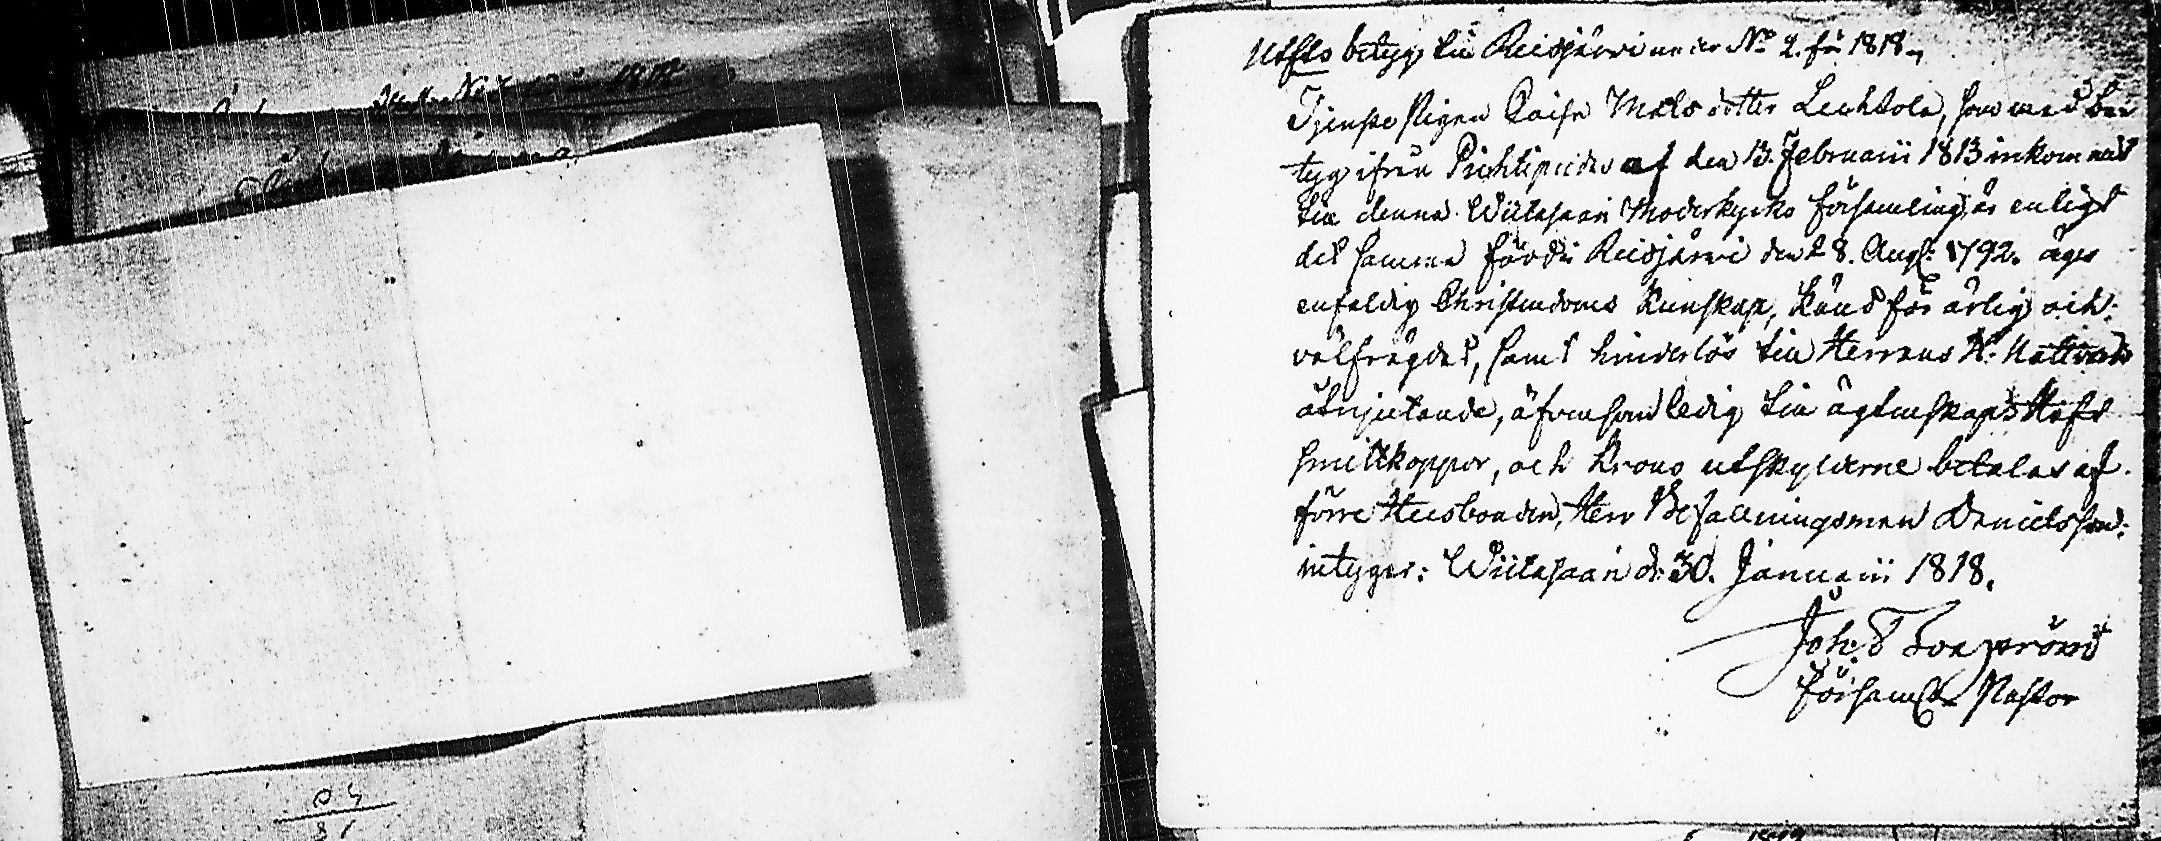 Utflts betyg till Reisjärvi under No 2. för 1818.
Tjenste Pigan Caisa Mats dotter Lechtola, som med be
tyg ifrån Pichtipudas af den 13. Februarii 1813 inkommit
till denna Wiitasaari Moderkyrko församling, är enligt
det samma född i Reisjärvi den 28. Aug: 1792. äger
enfaldig Christendoms kunskap, känd för ärlig och
välfrägdad, samt hinderlös till Herrans H. Nattvards
åtnjutande, äfvensom ledig till ägtenskap. Haft
smittkoppor, och krono utskylderne betalas af
förre Husbonden, Herr Befallningsman Danielson:
intygar: Wiitasaari d: 30. Januarii 1818.
Joh:
Församls Pastor